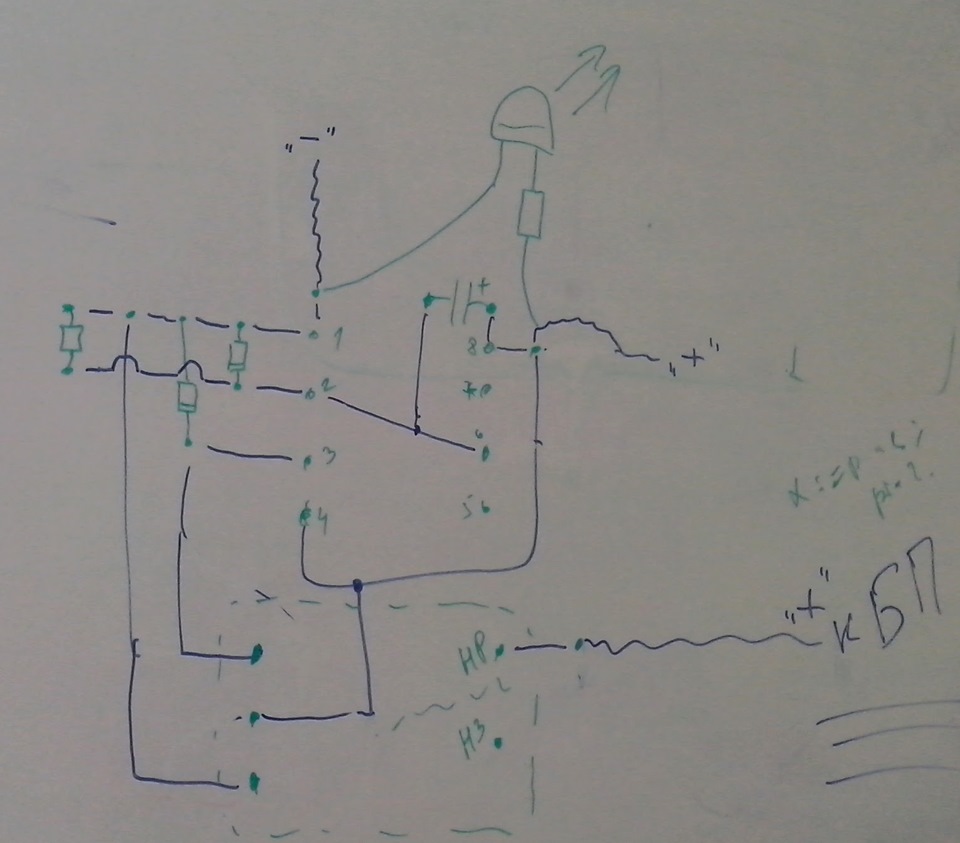 „—"
+
1
8
„+"
2
7
6
3
4
5
„+" к БП
НР
НЗ